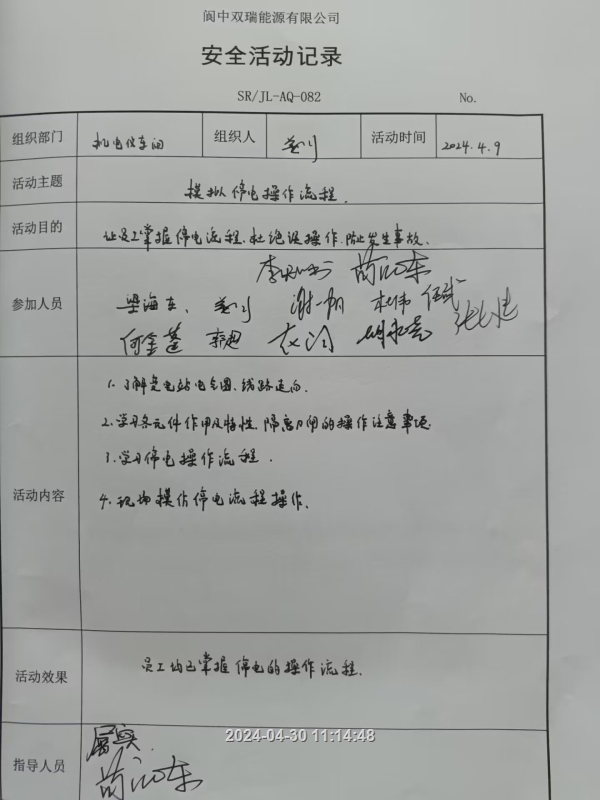 阆中双瑞能源有限公司
安全活动记录
SR/JL-AQ-082 No.
组织部门 机电仪车间 组织人 活动时间 2024.4.9
活动主题 模拟停电操作流程.
活动目的 让员工掌握停电流程.杜绝误操作.防止发生事故.
参加人员
梁海东、 谢一帆 杜伟 伍武
何金蓬 李超
活动内容
1. 了解变电站电气图、线路走向.
2. 学习各元件作用及特性.隔离刀闸的操作注意事项.
3. 学习停电操作流程.
4. 现场模仿停电流程操作.
活动效果 员工均已掌握停电的操作流程.
2024-04-30 11:14:48
指导人员 属实.